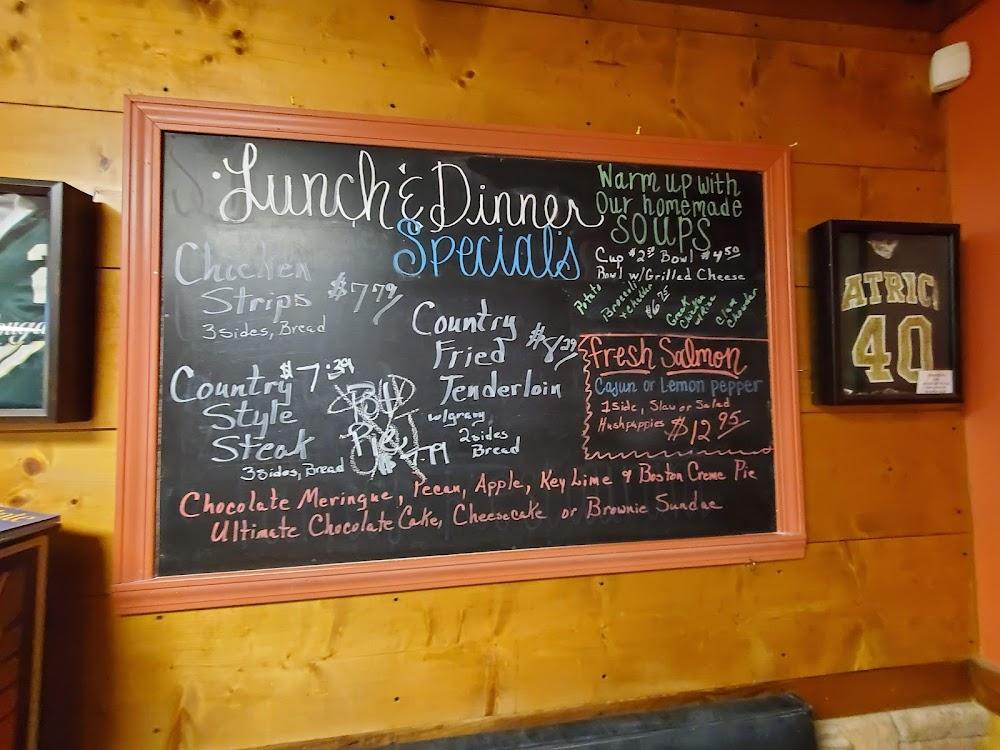 Lunch & Dinner
Specials
Chicken
Strips $7.79
3 sides, Bread
Country $7.39
Style
Steak
3 sides, Bread
Pot
Pie
Country
Fried $8.29
Tenderloin
w/gravy
2 sides
Bread
Warm up with
Our homemade
SOUPS
Cup $2.50 Bowl $4.50
Bowl w/Grilled Cheese
$6.75
Potato
Broccoli
+ Cheddar
Greek
Chicken
w/Rice
Clam
Chowder
Fresh Salmon
Cajun or Lemon pepper
1 side, Slaw or Salad
Hushpuppies $12.95
Chocolate Meringue, Pecan, Apple, Key Lime & Boston Creme Pie
Ultimate Chocolate Cake, Cheesecake or Brownie Sundae
ATRIC
40